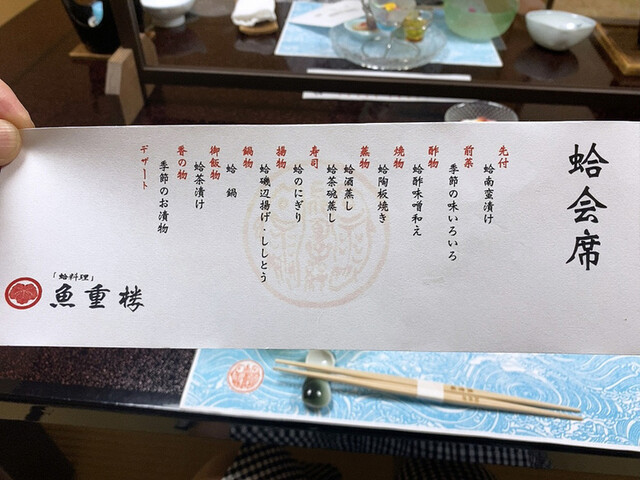 蛤会席
先付
蛤南蛮漬け
前菜
季節の味いろいろ
酢物
蛤酢味噌和え
焼物
蛤陶板焼き
蒸物
蛤酒蒸し
蛤茶碗蒸し
寿司
蛤のにぎり
揚物
蛤磯辺揚げ・ししとう
鍋物
蛤 鍋
御飯物
蛤茶漬け
香の物
季節のお漬物
デザート
「蛤料理」
魚重楼